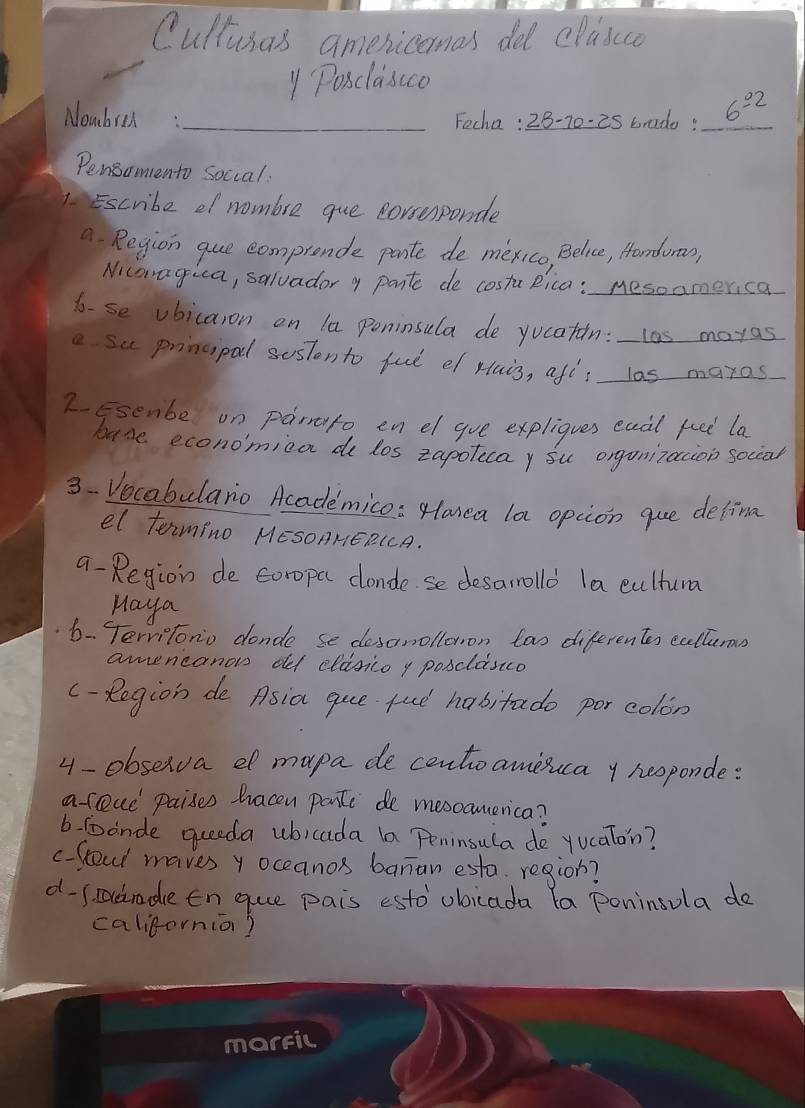 Culturas americanas del clásico
y Posclásico
Nombres : Fecha : 28-10-25 Grado : 6º2
Pensamiento social:
1- Escribe el nombre que corresponde
a- Region que comprende parte de méxico, Belice, Honduras,
Nicaragüa, salvador y parte de costa Rica: Mesoamerica
b- se ubicaron en la Peninsula de yucatán: los mayas
c- su principal sustento fué el Maíz, así: las mayas
2- Escribe un párrafo en el que expliques cuál fué la
base económica de los zapoteca y su organización social
3- Vocabulario Académico: Marca la opción que defina
el termino MESOAMERICA.
a- Región de Europa donde se desarrolló la cultura
Maya
b- Territorio donde se desarrollaron las diferentes culturas
americanas del clásico y posclásico
c- Region de Asia que fué habitado por colón
4- observa el mapa de centroamérica y responde:
a- ¿Qué paises hacen parte de mesoamerica?
b- ¿Dónde queda ubicada la Peninsula de yucatan?
c- ¿Qué mares y oceanos bañan esta region?
d- ¿ En que pais está ubicada la Peninsula de
california?
marfil